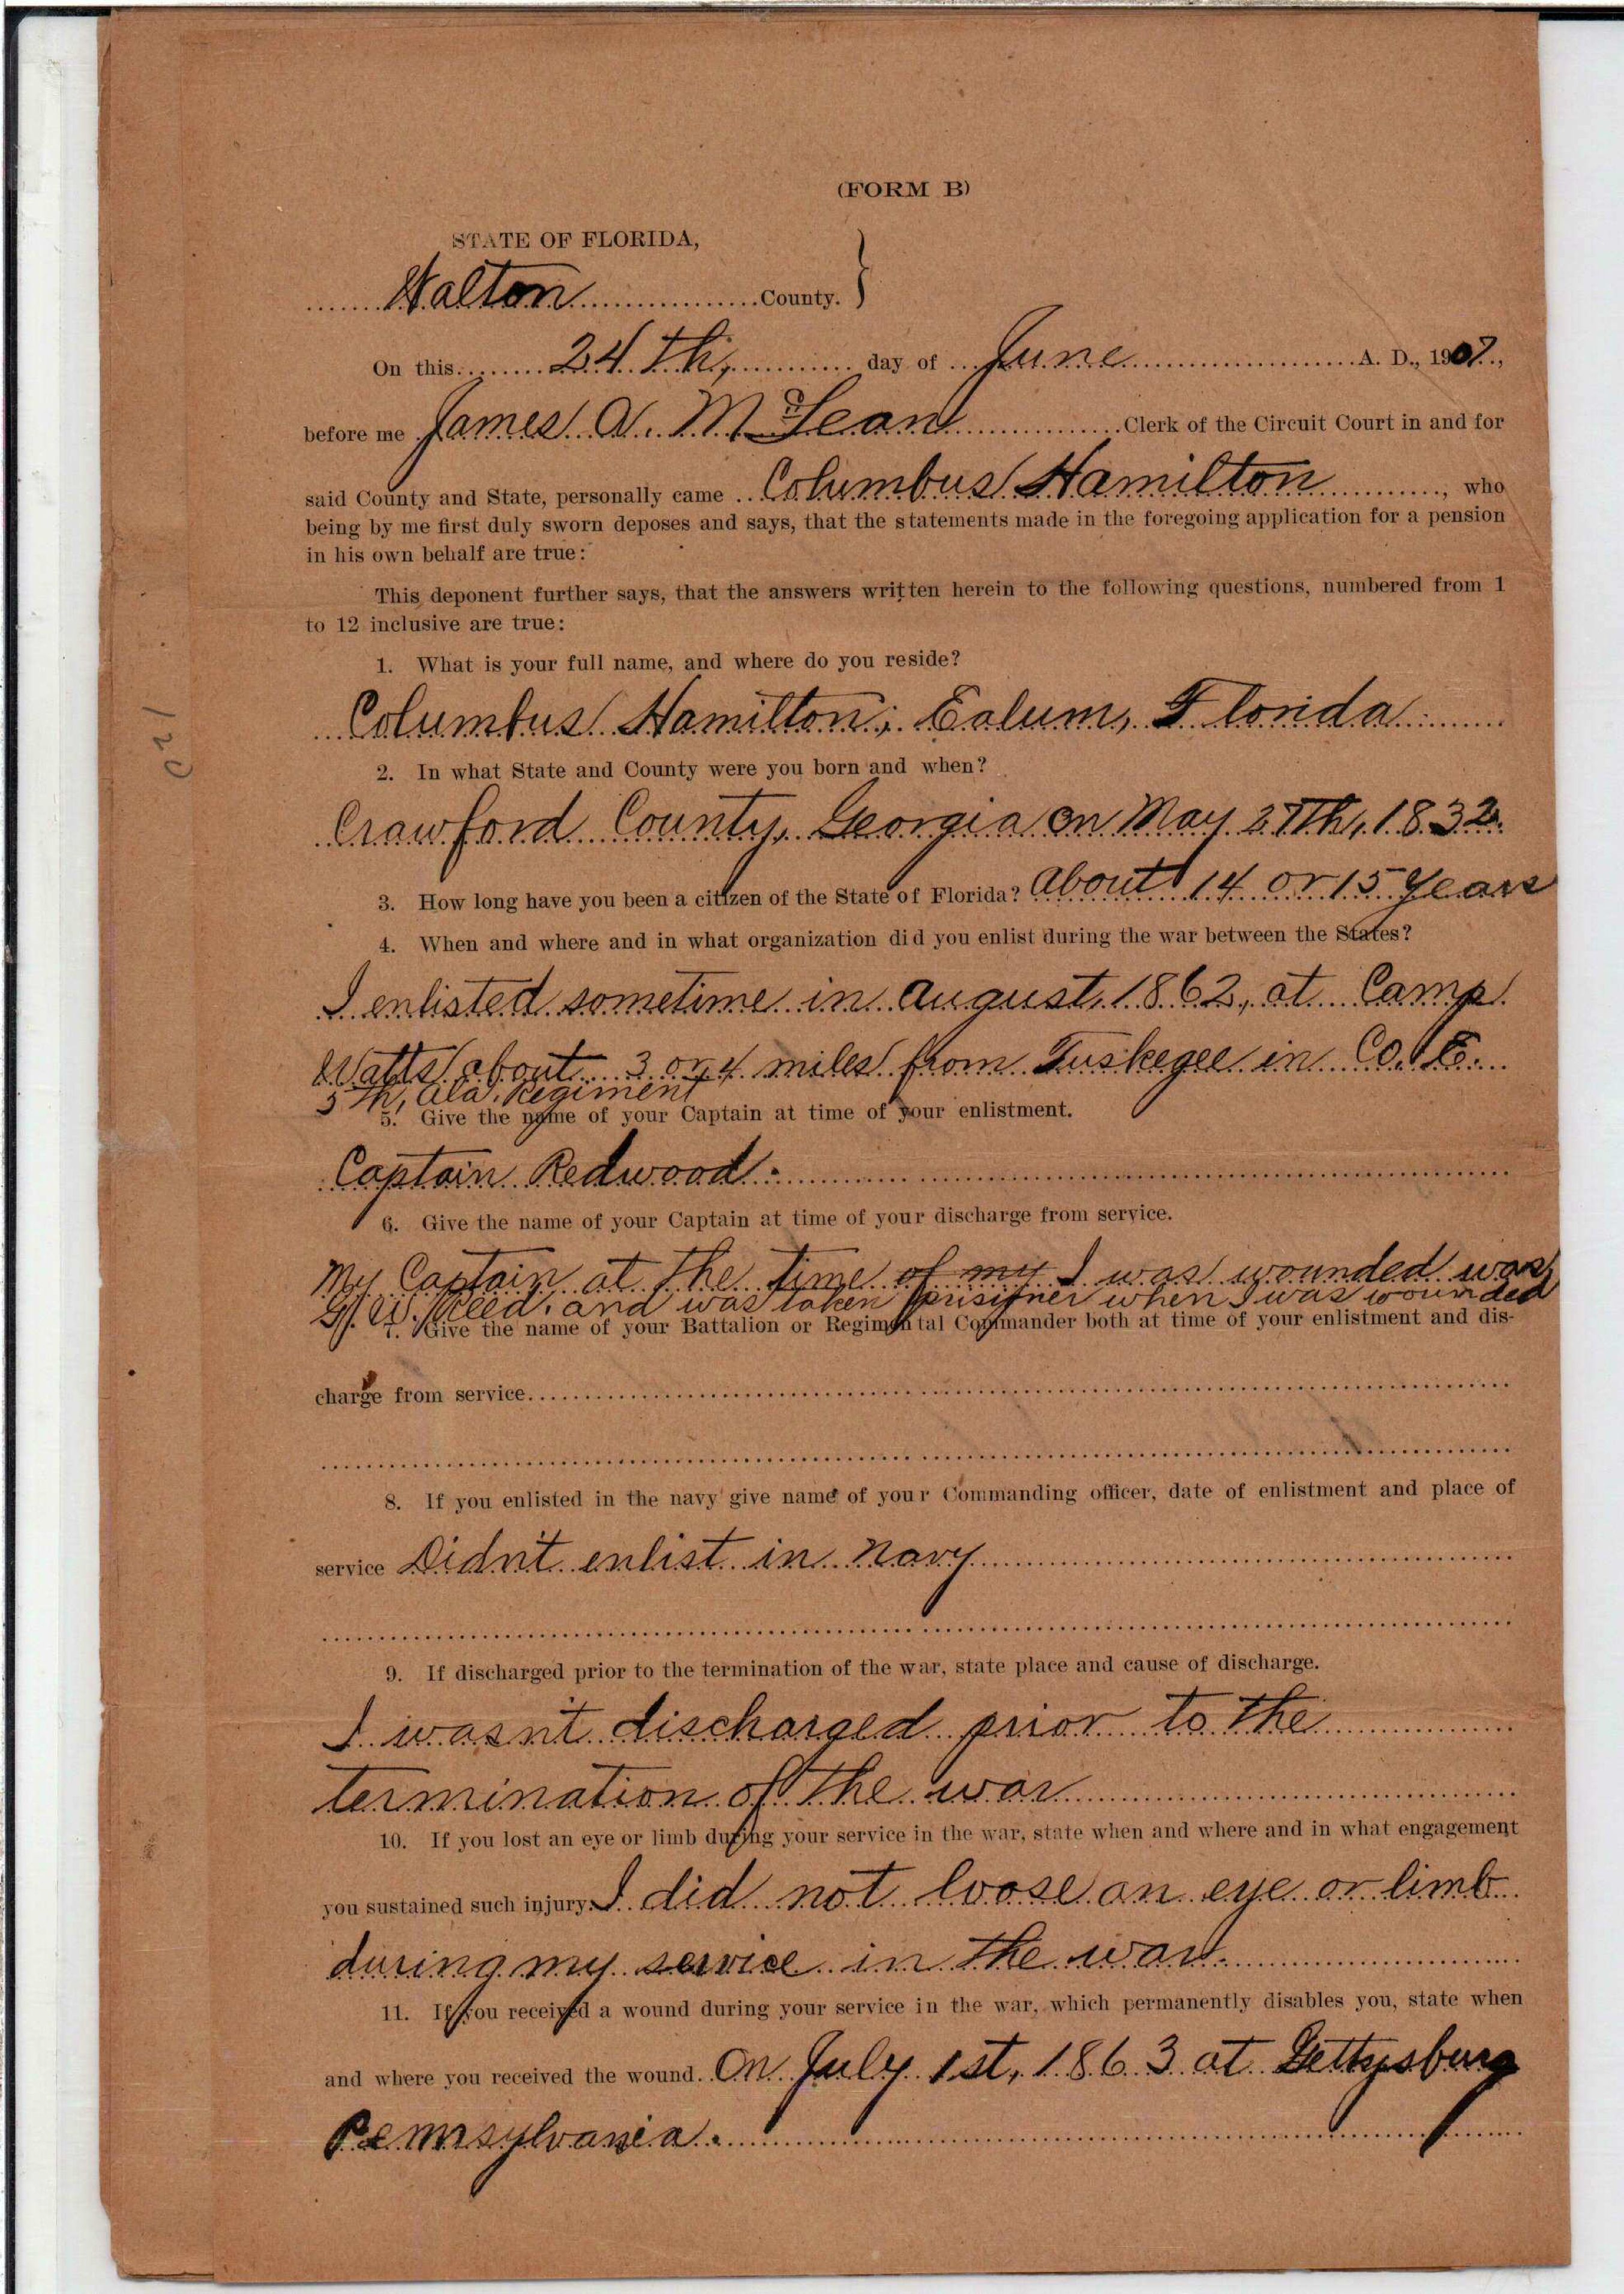 (FORM B)
STATE OF FLORIDA,
Walton County. }
On this 24th, day of June A. D., 1907,
before me James A. McLean Clerk of the Circuit Court in and for
said County and State, personally came Columbus Hamilton, who
being by me first duly sworn deposes and says, that the statements made in the foregoing application for a pension
in his own behalf are true:
This deponent further says, that the answers written herein to the following questions, numbered from 1
to 12 inclusive are true:
1. What is your full name, and where do you reside?
Columbus Hamilton; Ealum, Florida
2. In what State and County were you born and when?
Crawford County, Georgia on May 27th, 1832.
3. How long have you been a citizen of the State of Florida? About 14 or 15 Years
4. When and where and in what organization did you enlist during the war between the States?
I enlisted sometime in August, 1862, at Camp
Watts about 3 or 4 miles from Tuskegee in Co. E.
5th, Ala. Regiment
5. Give the name of your Captain at time of your enlistment.
Captain Redwood.
6. Give the name of your Captain at time of your discharge from service.
My Captain at the time of my I was wounded was
G. W. Reed. and was taken prisifner when I was wounded
7. Give the name of your Battalion or Regimental Commander both at time of your enlistment and dis-
charge from service
8. If you enlisted in the navy give name of your Commanding officer, date of enlistment and place of
service Didn't enlist in Navy
9. If discharged prior to the termination of the war, state place and cause of discharge.
I wasn't discharged prior to the
termination of the war
10. If you lost an eye or limb during your service in the war, state when and where and in what engagement
you sustained such injury. I did not loose an eye or limb
during my service in the war.
11. If you received a wound during your service in the war, which permanently disables you, state when
and where you received the wound. On July 1st, 1863 at Gettysburg
Pennsylvania.